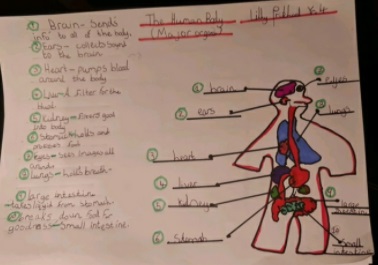 The Human Body
(Major organs)
① Brain - Sends
info to all of the body.
② Ears - collects sound
to the brain
③ Heart - pumps blood
around the body
④ filter for the
blood.
⑤ kidney - filters good
into body
⑥ Stomach - holds and
food
⑦ eyes - sees images all
around
⑧ lungs - holds breath
⑨ large intestine
takes liquid from stomach
breaks down food for
goodness - Small intestine.
① brain
② ears
③ heart
④ liver
⑤ kidney
⑥ Stomach
eyes
lungs
large
intestine
10
Small
intestine